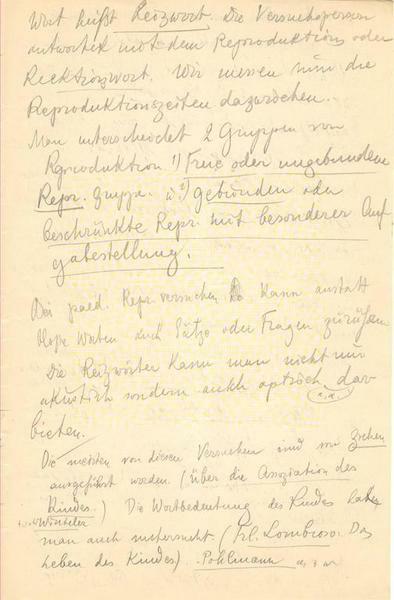 Wort heißt Reizwort. Die Versuchsperson
antwortet mit dem Reproduktions oder
Reaktionswort. Wir messen nun die
Reproduktionszeiten dazwischen.
Man unterscheidet 2 Gruppen von
Reproduktion 1) Freie oder ungebundene
Repr. Gruppe. u 2) gebunden oder
beschränkte Repr. mit besonderer Auf-
gabestellung.
Bei paed. Repr. versuchen kann anstatt
Worten auch Sätze oder Fragen zurufen
Die Reizwörter kann man nicht nur
akustisch sondern auch optisch dar
bieten.
Die meisten von diesen Versuchen sind von Ziehen
ausgeführt worden (über die Assoziation des
Kindes.) Die Wortbedeutung des Kindes hat
Winteler
man auch untersucht (Lombroso. Das
Leben des Kindes). Pohlmann